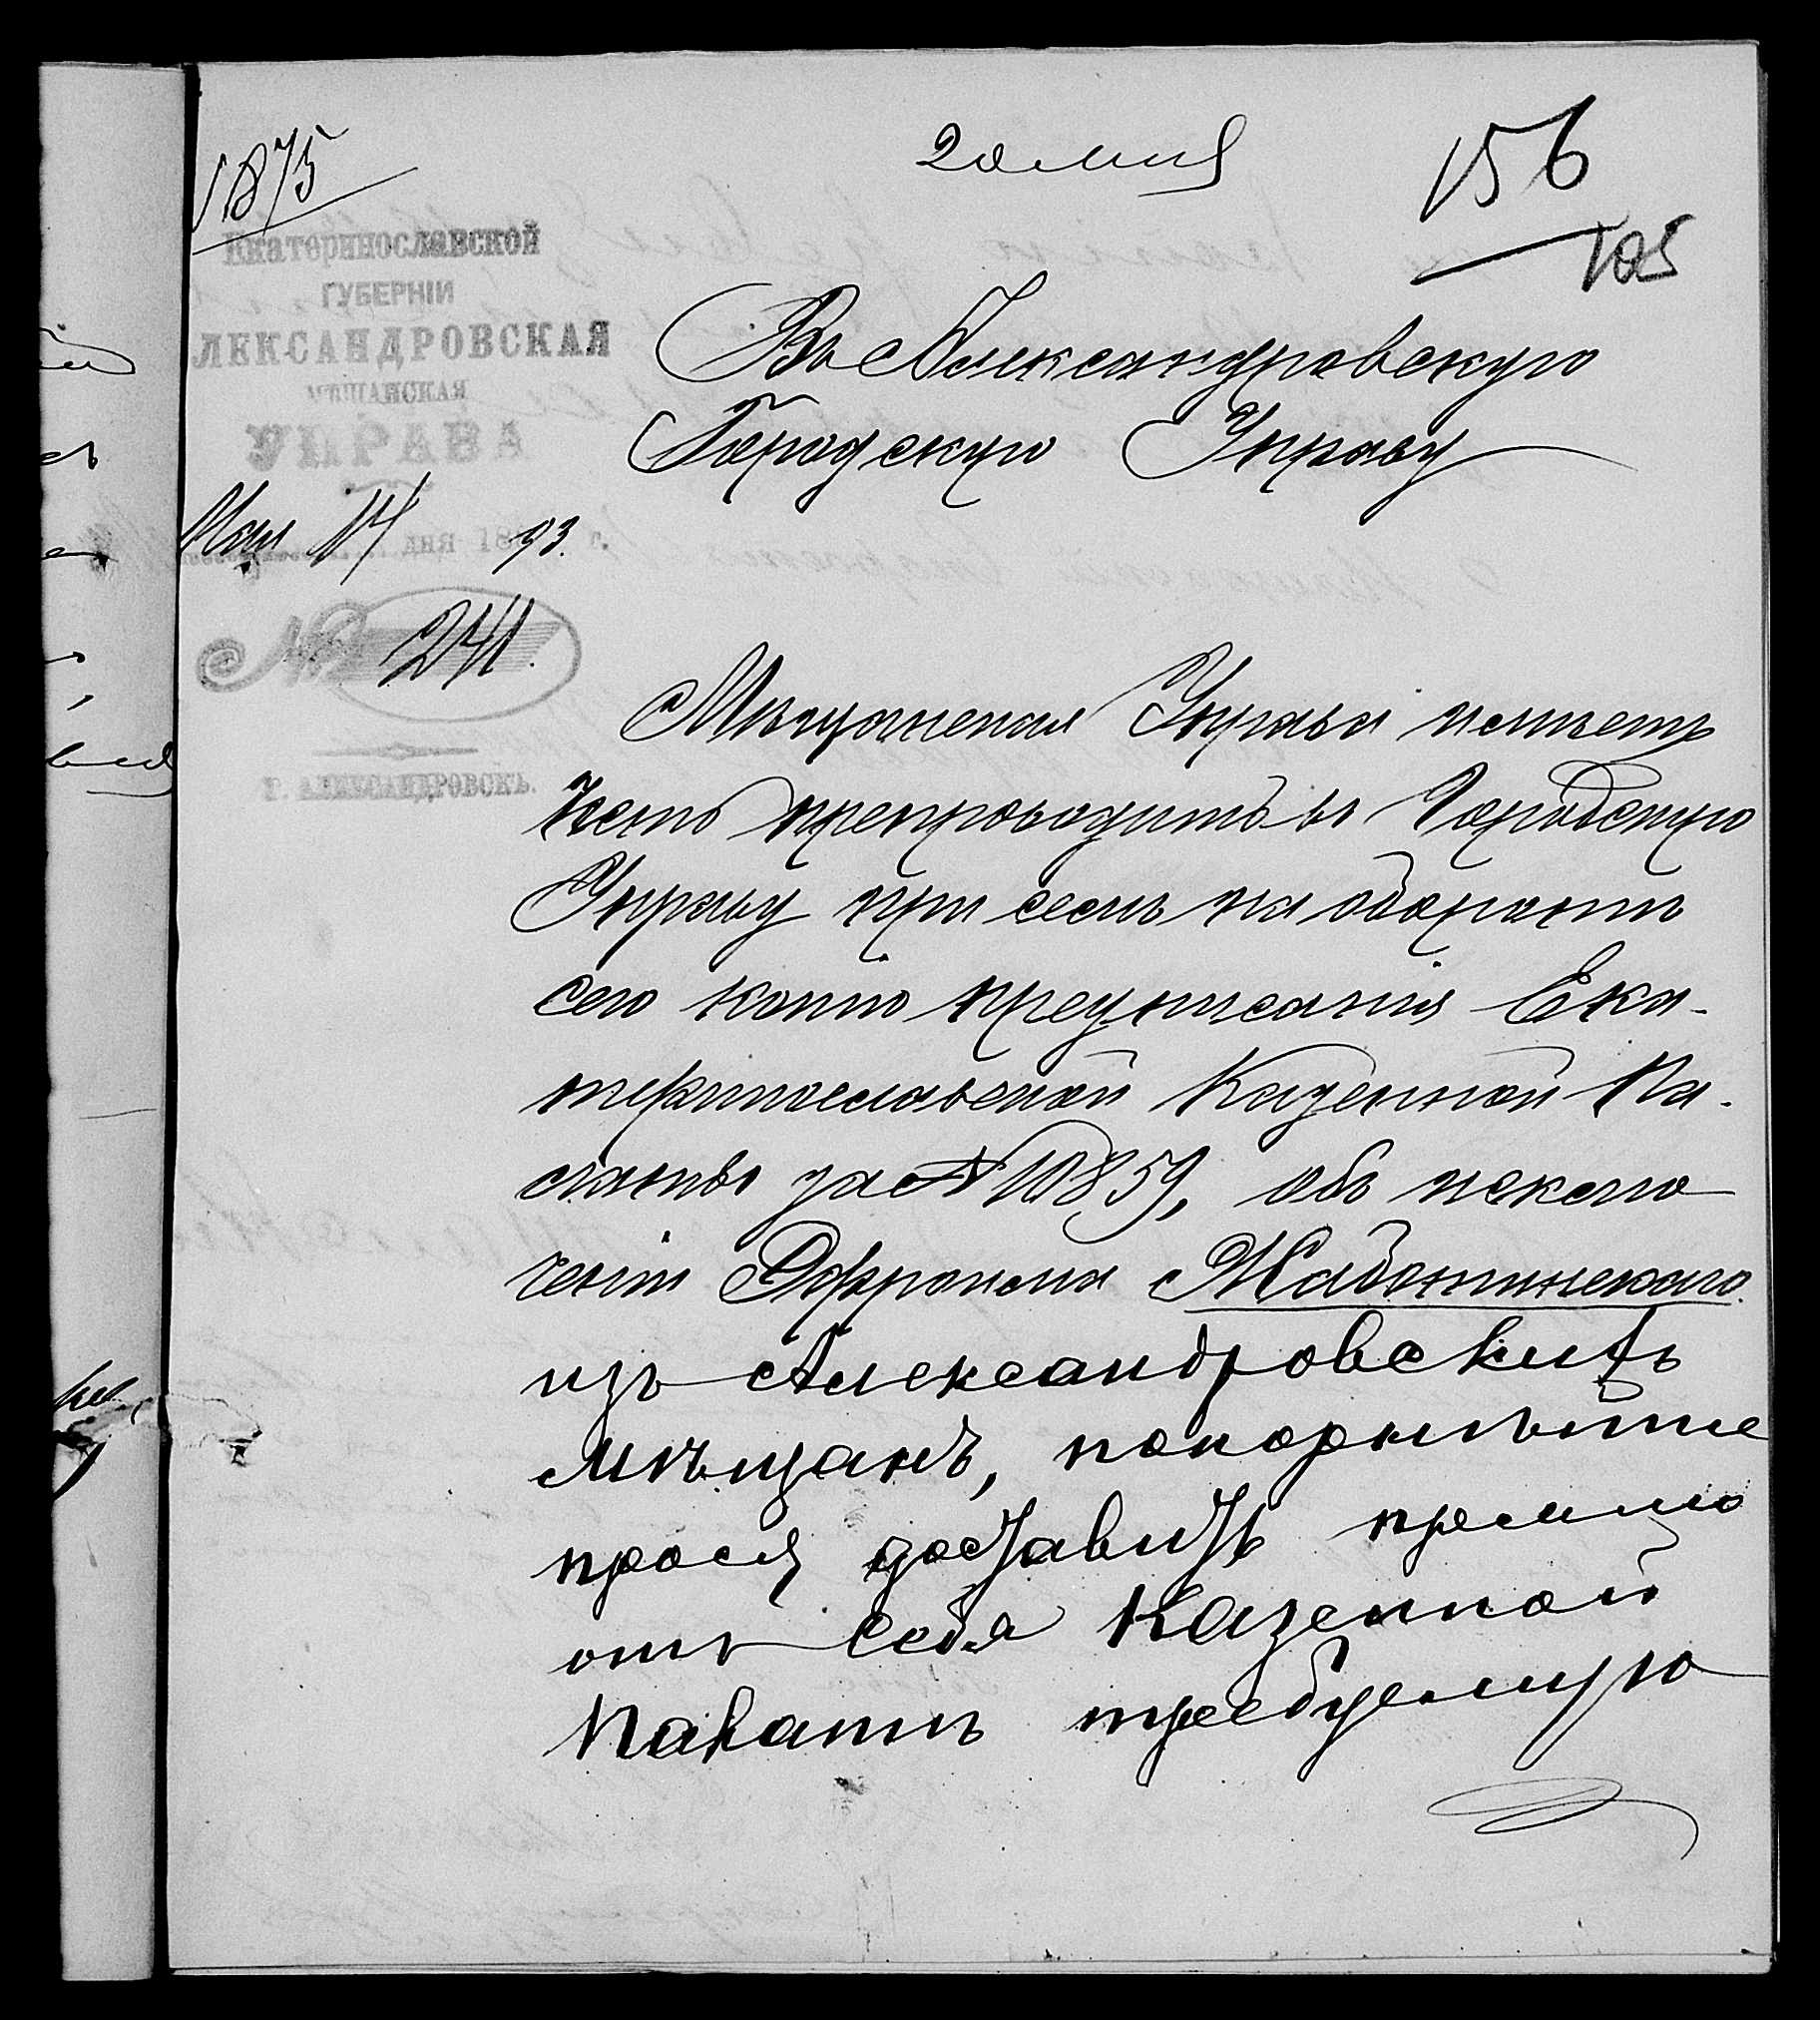 1875
20 мая
156
105
Екатеринославской
ГУБЕРНІИ
ЛЕКСАНДРОВСКАЯ
МѢЩАНСКАЯ
УПРАВА
Мая 14 дня 1893. г.
№ 241.
Г. АЛЕКСАНДРОВСКЪ.
Въ Александровскую
Городскую Управу
Мѣщанская Управа имѣетъ
честь препроводить въ Городскую
Управу при семъ на оборотѣ
сего копію предписанія Ека-
теринославской Казенной Па-
латы за № 10859, объ исклю
ченіи Эфроима Жаботинскаго
изъ Александровскихъ
мѣщанъ, покорнѣйше
прося доставить прямо
отъ себя Казенной
Палатѣ требуемую